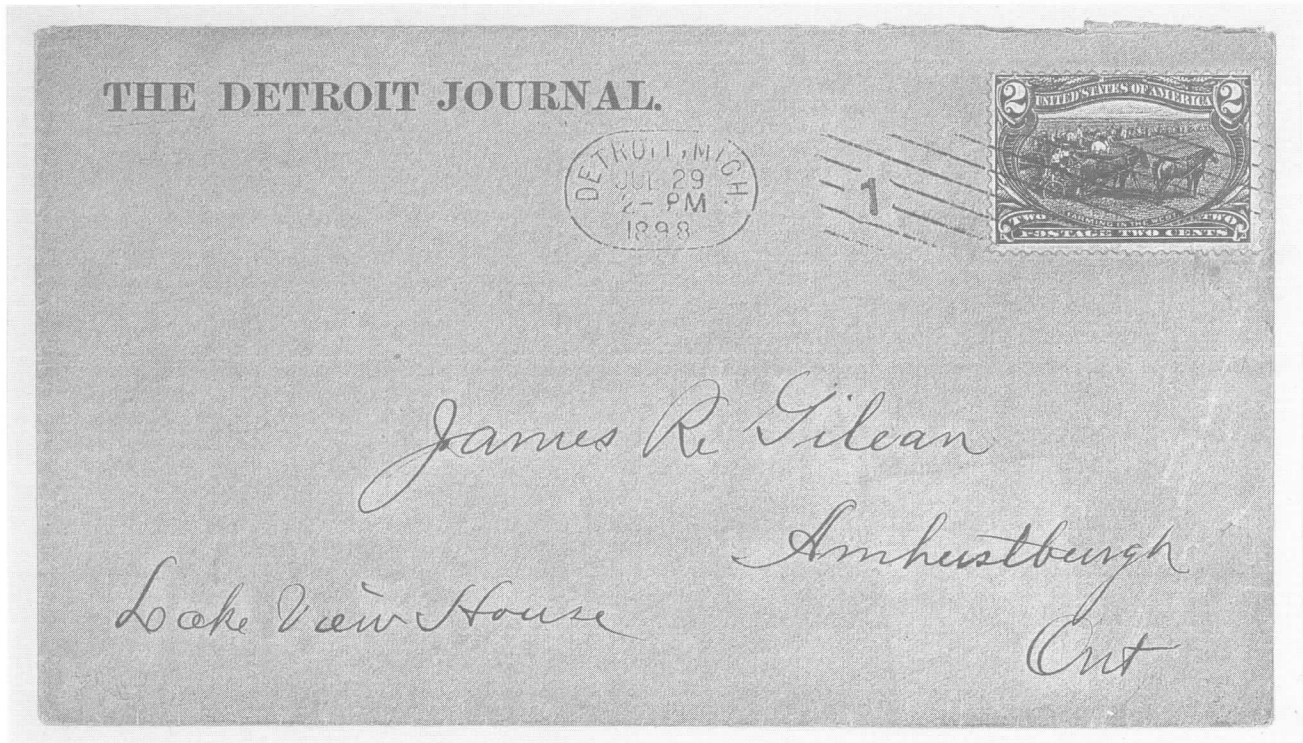 THE DETROIT JOURNAL.
DETROIT, MICH.
JUL 29
2- PM
1898
1
2 UNITED STATES OF AMERICA 2
TWO FARMING IN THE WEST TWO
POSTAGE TWO CENTS
James R. Gilean
Amhurstburgh
Lake View House
Ont